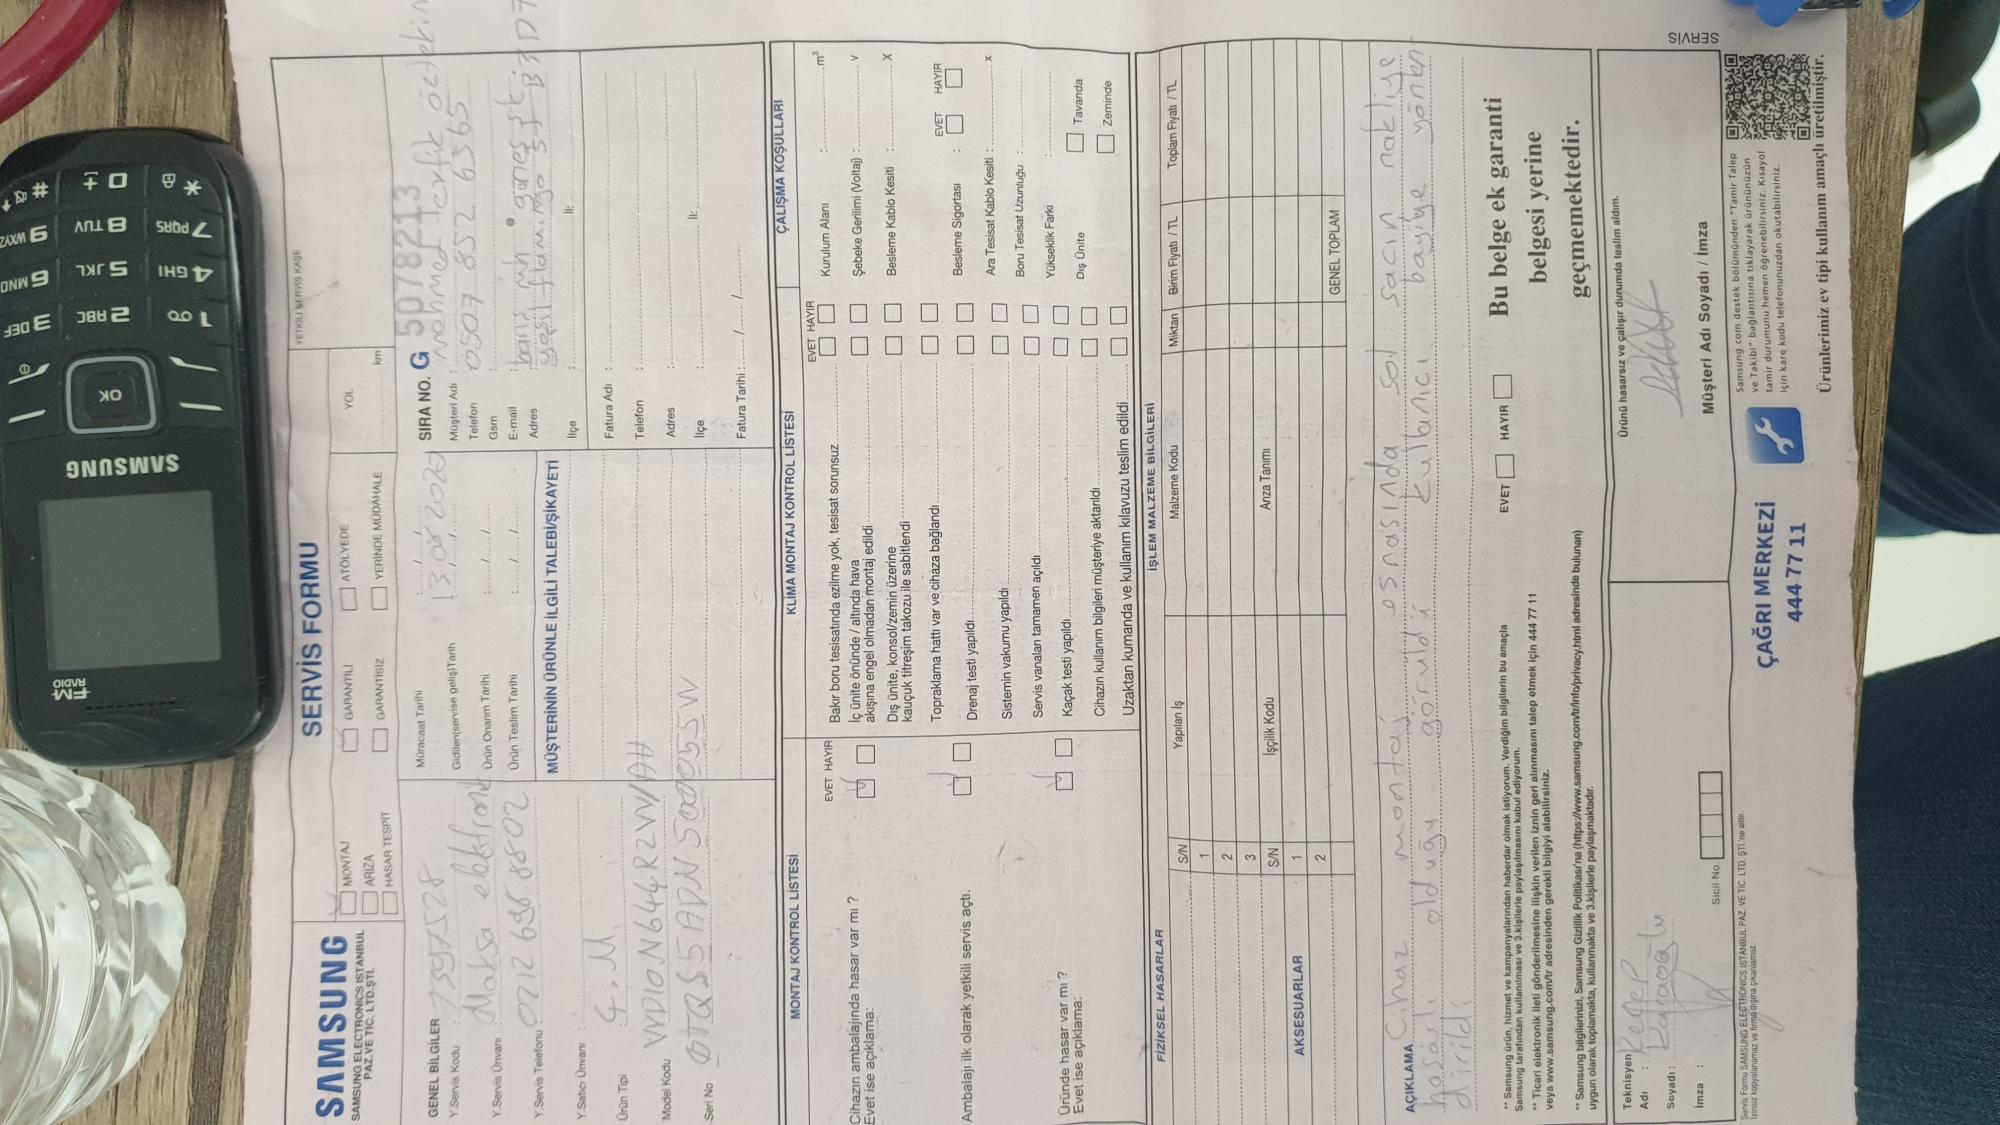 SERVİS FORMU
SAMSUNG
SAMSUNG ELECTRONICS ISTANBUL
PAZ.VE TİC. LTD.ŞTİ.
MONTAJ
ARIZA
HASAR TESPİT
GARANTİLİ
GARANTİSİZ
ATÖLYEDE
YERİNDE MÜDAHALE
YOL
km
YETKİLİ SERVİS KAŞE
GENEL BİLGİLER
Y.Servis Kodu : 7397528
Y.Servis Ünvanı : Maksa elektronik
Y.Servis Telefonu : 0212 698 8802
Y.Satıcı Ünvanı :
Ürün Tipi : Ç.M.
Model Kodu
Seri No
Müracaat Tarihi :...../...../.....
Gidilen(servise geliş)Tarih 13.08.2020
Ürün Onarım Tarihi :...../...../.....
Ürün Teslim Tarihi :...../...../.....
MÜŞTERİNİN ÜRÜNLE İLGİLİ TALEBİ/ŞİKAYETİ
SIRA NO. G 5078213
Müşteri Adı : mehmed tevfik
Telefon : 0507 852 6565
Gsm :
E-mail : @
Adres : barış mh güneş sk.
yeşil flamingo
İlçe : İl:
Fatura Adı :
Telefon :
Adres :
İlçe : İl:
Fatura Tarihi :...../...../.....
MONTAJ KONTROL LİSTESİ
EVET HAYIR
Cihazın ambalajında hasar var mı ?
Evet ise açıklama:
Ambalajı ilk olarak yetkili servis açtı.
Üründe hasar var mı ?
Evet ise açıklama:
KLİMA MONTAJ KONTROL LİSTESİ
EVET HAYIR
Bakır boru tesisatında ezilme yok, tesisat sorunsuz
İç ünite önünde / altında hava
akışına engel olmadan montaj edildi
Dış ünite, konsol/zemin üzerine
kauçuk titreşim takozu ile sabitlendi
Topraklama hattı var ve cihaza bağlandı
Drenaj testi yapıldı
Sistemin vakumu yapıldı
Servis vanaları tamamen açıldı
Kaçak testi yapıldı
Cihazın kullanım bilgileri müşteriye aktarıldı
Uzaktan kumanda ve kullanım kılavuzu teslim edildi
ÇALIŞMA KOŞULLARI
Kurulum Alanı : m³
Şebeke Gerilimi (Voltaj) : v
Besleme Kablo Kesiti : x
EVET HAYIR
Besleme Sigortası :
Ara Tesisat Kablo Kesiti : x
Boru Tesisat Uzunluğu :
Yükseklik Farkı :
Dış Ünite : Tavanda
Zeminde
FİZİKSEL HASARLAR
AKSESUARLAR
İŞLEM MALZEME BİLGİLERİ
S/N Yapılan İş Malzeme Kodu Miktarı Birim Fiyatı / TL Toplam Fiyatı / TL
1
2
3
S/N İşçilik Kodu Arıza Tanımı
1
2
GENEL TOPLAM
AÇIKLAMA Cihaz montaj esnasında sol sacın nakliye
hasarlı olduğu görüldü kullanıcı bayiye yönlen
dirildi
** Samsung ürün, hizmet ve kampanyalarından haberdar olmak istiyorum. Verdiğim bilgilerin bu amaçla
Samsung tarafından kullanılması ve 3.kişilerle paylaşılmasını kabul ediyorum.
EVET HAYIR
** Ticari elektronik ileti gönderilmesine ilişkin verilen iznin geri alınmasını talep etmek için 444 77 11
veya www.samsung.com/tr adresinden gerekli bilgiyi alabilirsiniz.
** Samsung bilgilerinizi, Samsung Gizlilik Politikası'na (https://www.samsung.com/tr/info/privacy.html adresinde bulunan)
uygun olarak toplamakta, kullanmakta ve 3.kişilerle paylaşmaktadır.
Bu belge ek garanti
belgesi yerine
geçmemektedir.
Teknisyen
Adı : Recep
Soyadı :
İmza :
Sicil No.
Ürünü hasarsız ve çalışır durumda teslim aldım.
Müşteri Adı Soyadı / İmza
Servis Formu SAMSUNG ELECTRONICS ISTANBUL PAZ. VE TİC. LTD. ŞTİ.'ne aittir.
İzinsiz kopyalanamaz ve firma dışına çıkarılamaz.
ÇAĞRI MERKEZİ
444 77 11
Samsung.com destek bölümünden "Tamir Talep
ve Takibi" bağlantısına tıklayarak ürününüzün
tamir durumunu hemen öğrenebilirsiniz. Kısayol
için kare kodu telefonunuzdan okutabilirsiniz.
Ürünlerimiz ev tipi kullanım amaçlı üretilmiştir.
SERVİS
SAMSUNG
FM
RADIO
OK
1
2 ABC
3 DEF
4 GHI
5 JKL
6 MNO
7 PQRS
8 TUV
9 WXYZ
*
0 +
#